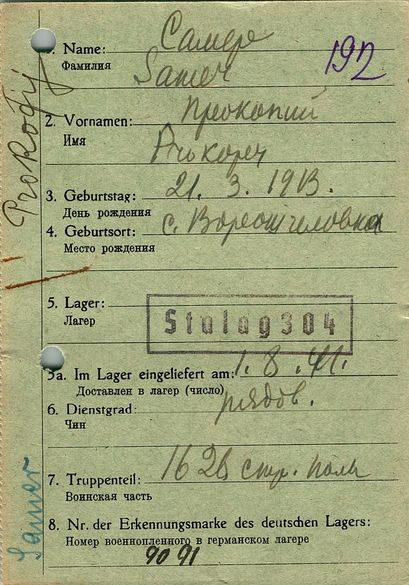 1. Name: Самере
Фамилия
Samer
192
2. Vornamen: Прокопий
Имя
Prokofij
3. Geburtstag: 21. 3. 1913.
День рождения
4. Geburtsort: с.
Место рождения
5. Lager: Stalag 304
Лагерь
5a. Im Lager eingeliefert am: 1. 8. 41.
Доставлен в лагерь (число)
6. Dienstgrad: рядов.
Чин
7. Truppenteil: 162 стр. полк
Воинская часть
Samer
8. Nr. der Erkennungsmarke des deutschen Lagers:
Номер военнопленного в германском лагере
9091